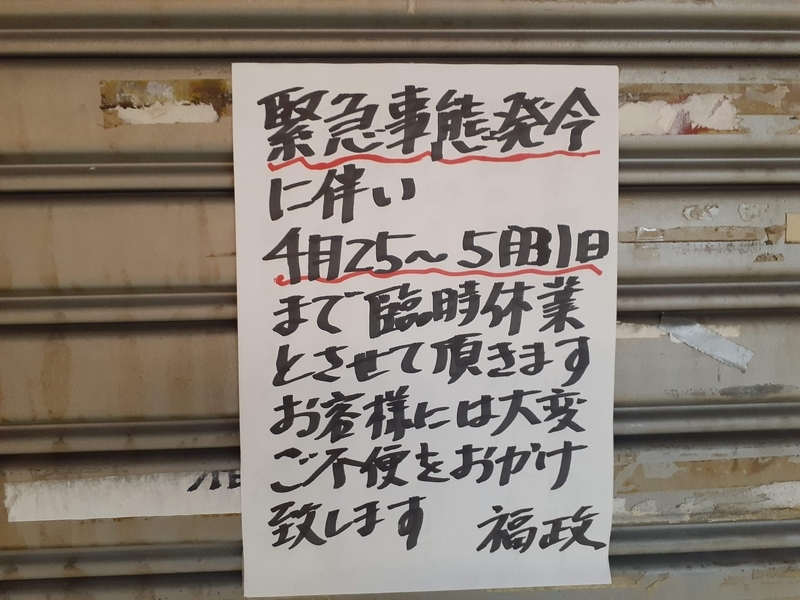 緊急事態発令
に伴い
4月25〜5月31日
まで臨時休業
とさせて頂きます
お客様には大変
ご不便をおかけ
致します 福政